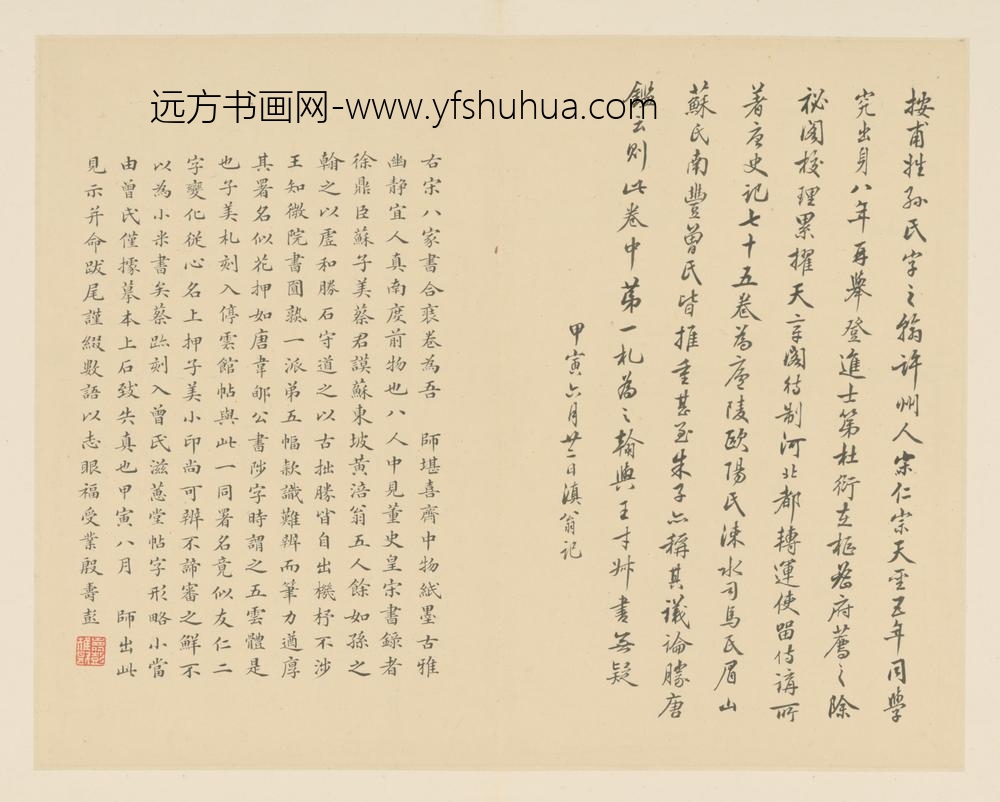 远方书画网-www.yfshuhua.com
按甫姓孙氏字之翰许州人宋仁宗天圣五年同學
究出身八年再舉登進士第杜衍在樞密府薦之除
祕阁校理累擢天章阁待制河北都轉運使留侍講所
著唐史记七十五卷為廬陵歐陽氏涑水司馬氏眉山
蘇氏南豐曾氏皆推重甚至朱子亦稱其議論勝唐
鑑云则此卷中第一札為之翰與王寸艸書無疑
甲寅六月廿二日滇翁记
右宋八家書合裝卷為吾 師堪喜齋中物紙墨古雅
幽静宜人真南度前物也八人中見董史皇宋書錄者
徐鼎臣蘇子美蔡君謨蘇東坡黃涪翁五人餘如孫之
翰之以虛和勝石守道之以古拙勝皆自出機杼不涉
王知微院書圓熟一派弟五幅款識難辨而筆力遒厚
其署名似花押如唐韋郇公書陟字時謂之五雲體是
也子美札刻入停雲館帖與此一同署名竟似友仁二
字變化従心名上押子美小印尚可辨不諦審之鮮不
以為小米書矣蔡跡刻入曾氏滋蕙堂帖字形略小當
由曾氏僅據摹本上石致失真也甲寅八月 師出此
見示并命跋尾謹綴數語以志眼福受業殷壽彭